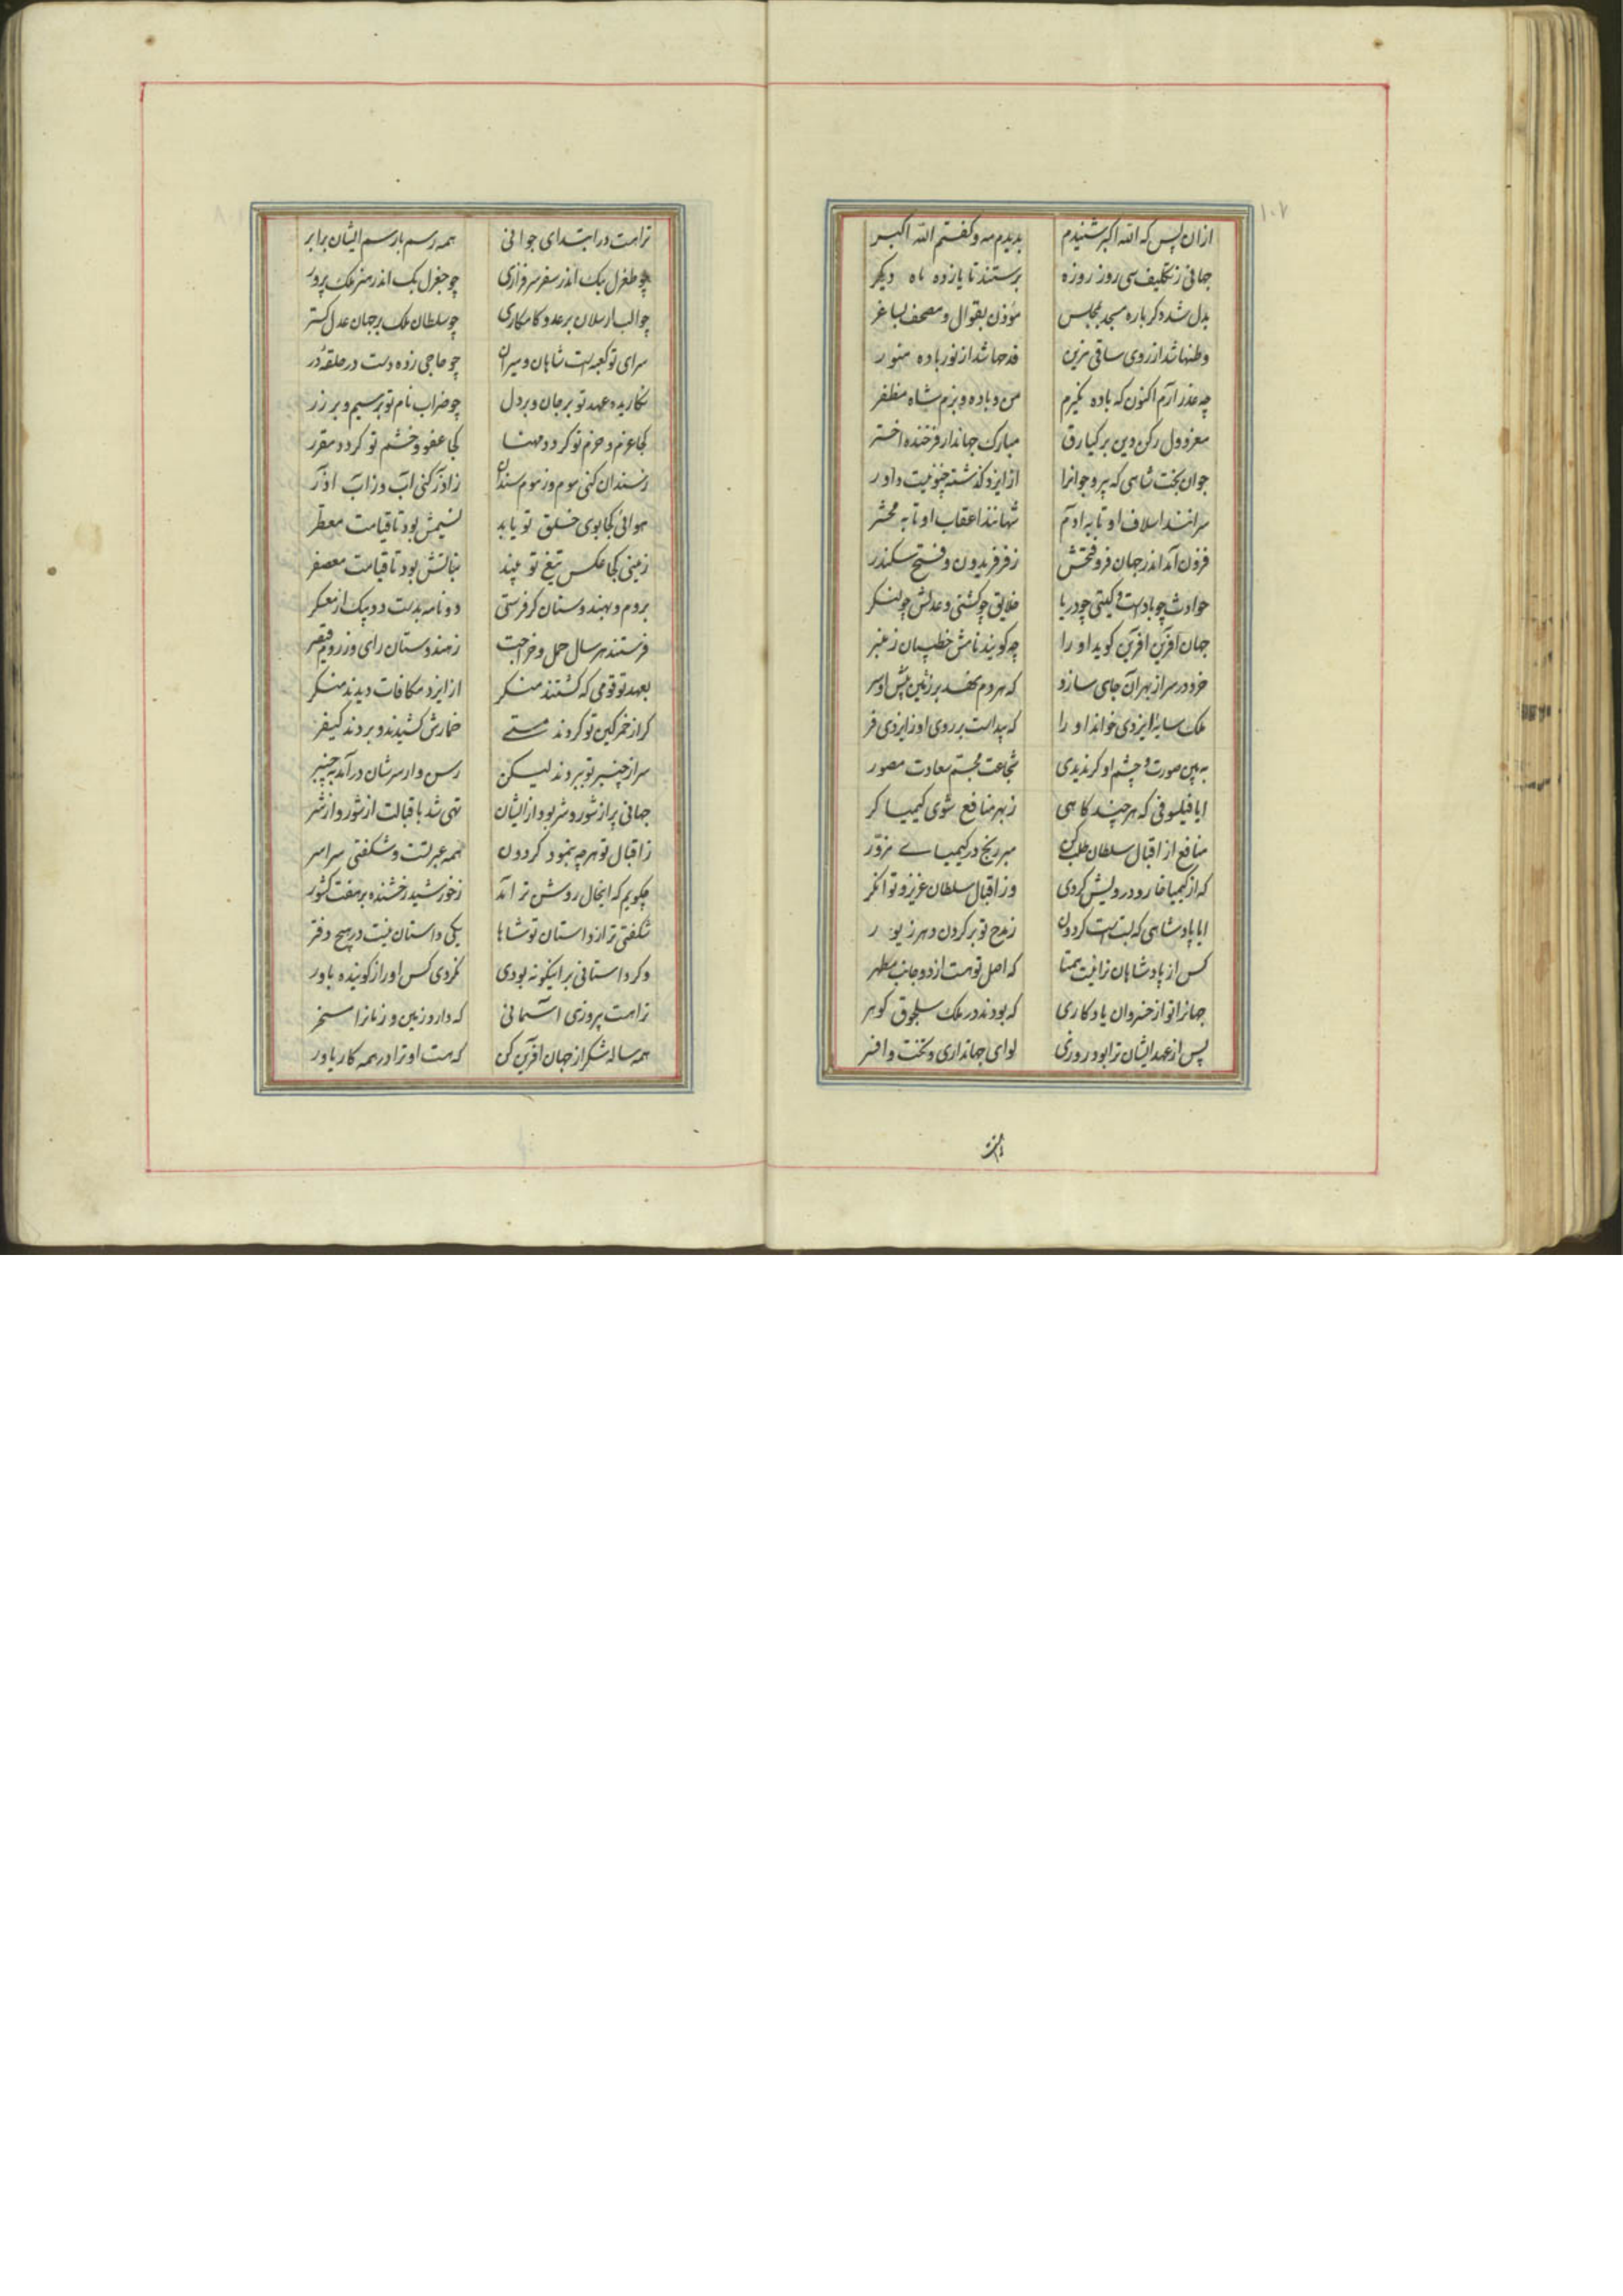 ۱۰۲
ازان پس که الله اکبر شنیدم بدیدم مه و کفتم الله اکبر
جهانی ز تکلیف سی روز روزه برستند تا یازده ماه دیکر
بدل شد دکر باره مسجد بمجلس مؤذن بقوال و مصحف بساغر
وطنها شد از روی ساقی مزین قدحها شد از نور باده منور
چه عذر آرم اکنون که باده نکیرم من و باده و بزم شاه مظفر
معز دول رکن دین برکیارق مبارک جهاندار فرخنده اختر
جوان بخت شاهی که پیر و جوانرا از ایزد کذشته چنو نیست داور
سرانند اسلاف او تا به آدم شهانند اعقاب او تا به محشر
فزون آمد اندر جهان فر و فتحش ز فر فریدون و فتح سکندر
حوادث چو بادست و کیتی چو دریا خلایق چو کشتی و عدلش چو لنکر
جهان آفرین آفرین کوید او را چه کویند نامش خطیبان ز منبر
خرد در سر از بهر آن جای سازد که مردم نهد بر زمین پیش او سر
ملک سایهٔ ایزدی خواند او را که پیداست بر روی او ز ایزدی فر
به بین صورت و چشم او کر ندیدی شجاعت مجسم سعادت مصور
ایا فیلسوفی که هر چند کاهی ز بهر منافع شوی کیمیا کر
منافع از اقبال سلطان طلب کن مبر رنج در کیمیای مزور
که از کیمیا خار و درویش کردی وز اقبال سلطان عزیز و توانکر
ایا پادشاهی که بستست کردون ز مدح تو بر کردن دهر زیور
کس از پادشاهان ترا نیست همتا که اصل تو هست از دو جانب مطهر
جهانرا تو از خسروان یادکاری که بودند در ملک سلجوق کوهر
پس از عهد ایشان ترا بود روزی لوای جهانداری و تخت و افسر
تراست در ابتدای جوانی همه رسم با رسم ایشان برابر
چو طغرل بک اندر سفر سرفرازی چو جغرل بک اندر هنر ملک پرور
چو الب ارسلان بر عدو کامکاری چو سلطان ملک بر جهان عدل کستر
سرای تو کعبه است شاهان و میران چو حاجی زده دست در حلقهٔ در
نکاریده عهد تو بر جان و بر دل چو ضراب نام تو بر سیم و بر زر
کجا عزم و حزم تو کردد مهنا کجا عفو و خشم تو کردد مقرر
ز سندان کنی موم وز موم سندان ز آذر کنی آب وز آب آذر
هوائی کجا بوی خلق تو یابد نسیمش بود تا قیامت معطر
زمینی کجا عکس تیغ تو بیند نباتش بود تا قیامت معصفر
بروم و بهندوستان کر فرستی دو نامه بدست دو پیک از معسکر
فرستند هر سال حمل و خراجت ز هندوستان رای وز روم قیصر
بعهد تو قومی که کشتند منکر از ایزد مکافات دیدند منکر
کر از خمر کین تو کردند مستی خمارش کشیدند و بردند کیفر
سر از چنبر تو ببردند لیکن رسن وار سرشان درآمد به چنبر
جهانی پر از شور و شر بود از ایشان تهی شد باقبالت از شور و از شر
ز اقبال تو هر چه بنمود کردون همه عبرتست و شکفتی سراسر
چکویم که اینحال روشن تر آمد ز خورشید رخشنده بر هفت کشور
شکفتی تر از داستان تو شاها یکی داستان نیست در هیچ دفتر
و کر داستانی بر اینکونه بودی نکردی کس او را ز کوینده باور
تراست پیروزی آسمانی که دارد زمین و زمانرا مسخر
همه ساله شکر از جهان آفرین کن که هست او ترا در همه کار یاور